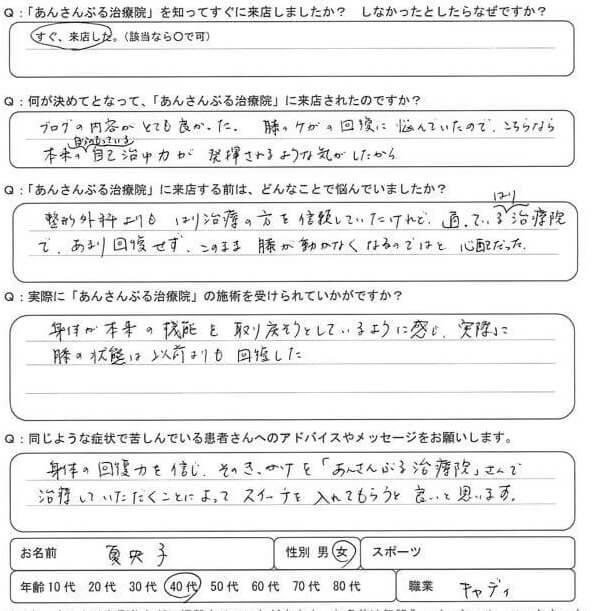 Q：「あんさんぶる治療院」を知ってすぐに来店しましたか？　しなかったとしたらなぜですか？
すぐ、来店した。（該当なら○で可）
Q：何が決めてとなって、「あんさんぶる治療院」に来店されたのですか？
ブログの内容がとても良かった。膝のケガの回復に悩んでいたので、こちらなら
本来の自己治ゆ力が発揮されるような気がしたから
Q：「あんさんぶる治療院」に来店する前は、どんなことで悩んでいましたか？
はり
整形外科よりもはり治療の方を信頼していたけれど、通っている治療院
で、あまり回復せず、このまま膝が動かなくなるのではと心配だった。
Q：実際に「あんさんぶる治療院」の施術を受けられていかがですか？
身体が本来の機能を取り戻そうとしているように感じ、実際に
膝の状態は以前よりも回復した
Q：同じような症状で苦しんでいる患者さんへのアドバイスやメッセージをお願いします。
身体の回復力を信じ、そのきっかけを「あんさんぶる治療院」さんで
治療していただくことによってスイッチを入れてもらうと良いと思います。
お名前　夏央子　性別 男 女　スポーツ
年齢 10代　20代　30代　40代　50代　60代　70代　80代　職業　キャディ